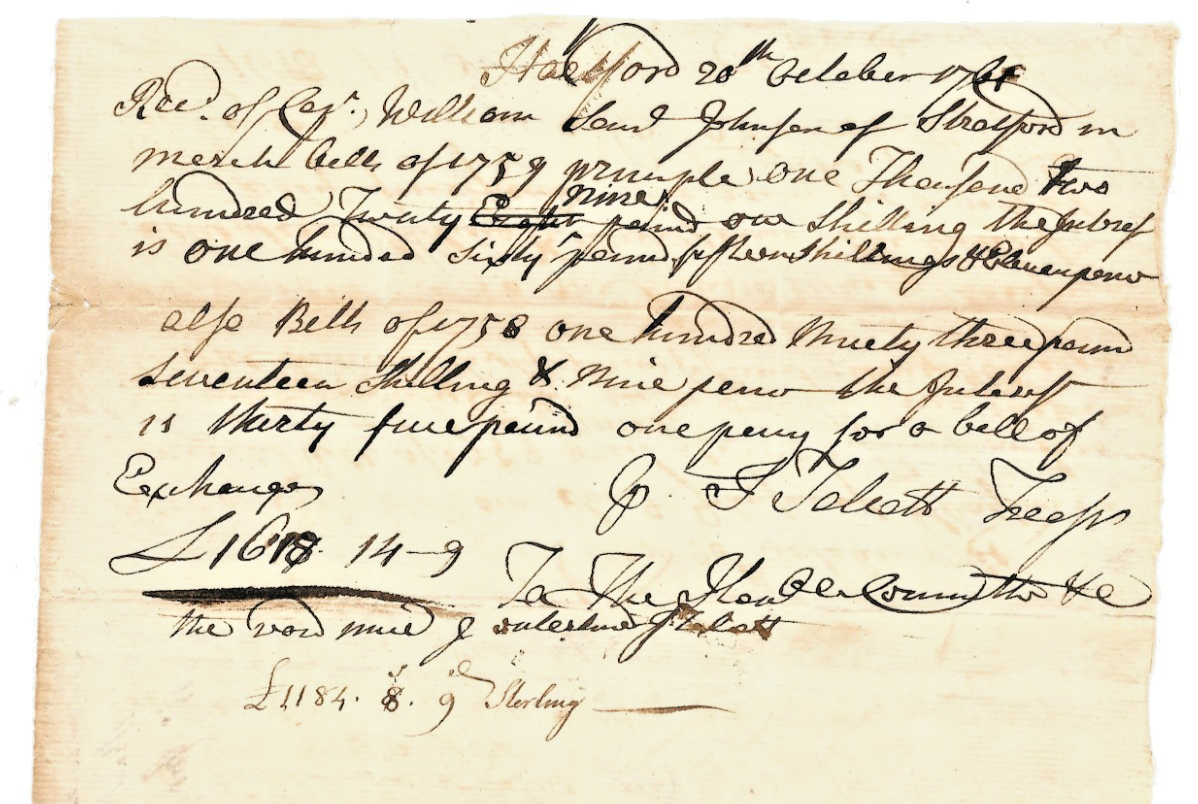 Hartford 20th October 1761
Recd. of Capt. William Saml Johnson of Stratford in
merch bills of 1759 principle one Thousand two
hundred Twenty Eight nine pound one shilling the Interest
is one hundred sixty pound fifteen shillings & Eleven penc
also Bills of 1758 one hundred Ninety three pound
seventeen shilling & Nine penc the Interest
is thirty five pound one penny for a bill of
Exchange
P J Talcott Treasr
£1618 14-9
To The Honble Committee &c
the word nine interlined J Talcott
£1184. 8s. 9d Sterling